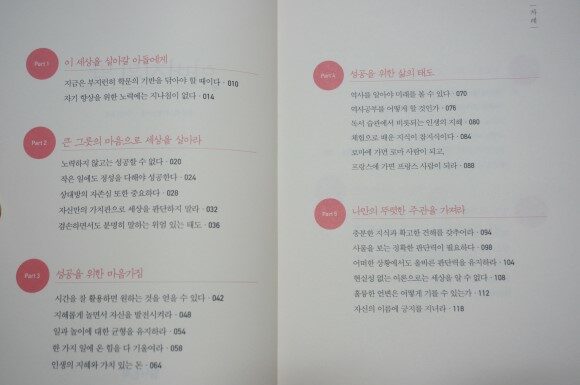 Part 1
이 세상을 살아갈 아들에게
지금은 부지런히 학문의 기반을 닦아야 할 때이다 · 010
자기 향상을 위한 노력에는 지나침이 없다 · 014
Part 2
큰 그릇의 마음으로 세상을 살아라
노력하지 않고는 성공할 수 없다 · 020
작은 일에도 정성을 다해야 성공한다 · 024
상대방의 자존심 또한 중요하다 · 028
자신만의 가치관으로 세상을 판단하지 말라 · 032
겸손하면서도 분명히 말하는 위엄 있는 태도 · 036
Part 3
성공을 위한 마음가짐
시간을 잘 활용하면 원하는 것을 얻을 수 있다 · 042
지혜롭게 놀면서 자신을 발전시켜라 · 048
일과 놀이에 대한 균형을 유지하라 · 054
한 가지 일에 온 힘을 다 기울여라 · 058
인생의 지혜와 가치 있는 돈 · 064
차례
Part 4
성공을 위한 삶의 태도
역사를 알아야 미래를 볼 수 있다 · 070
역사공부를 어떻게 할 것인가 · 076
독서 습관에서 비롯되는 인생의 지혜 · 080
체험으로 배운 지식이 참지식이다 · 084
로마에 가면 로마 사람이 되고,
프랑스에 가면 프랑스 사람이 되라 · 088
Part 5
나만의 뚜렷한 주관을 가져라
충분한 지식과 확고한 견해를 갖추어라 · 094
사물을 보는 정확한 판단력이 필요하다 · 098
어떠한 상황에서도 올바른 판단력을 유지하라 · 104
현실성 없는 이론으로는 세상을 알 수 없다 · 108
훌륭한 언변은 어떻게 기를 수 있는가 · 112
자신의 이름에 긍지를 지녀라 · 118